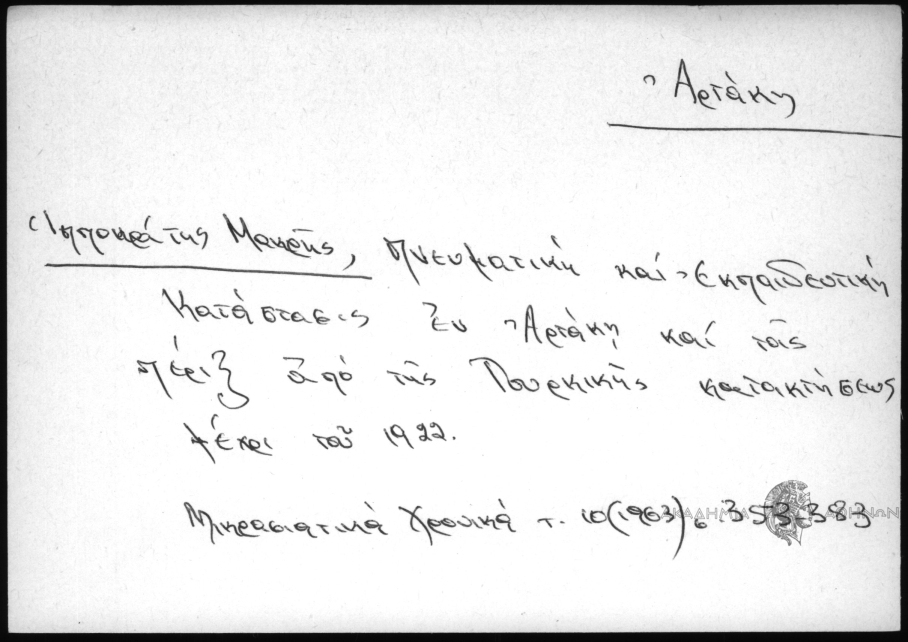 Ἀρτάκη
Ἱπποκράτης Μακρῆς, Πνευματική καί Ἐκπαιδευτική
Κατάστασις ἐν Ἀρτάκῃ καί ταῖς
πέριξ ἀπό τῆς Τουρκικῆς κατακτήσεως
μέχρι τοῦ 1922.
Μικρασιατικά Χρονικά τ. 10 (1963) σ. 353-383
ΑΚΑΔΗΜΙΑ ΑΘΗΝΩΝ